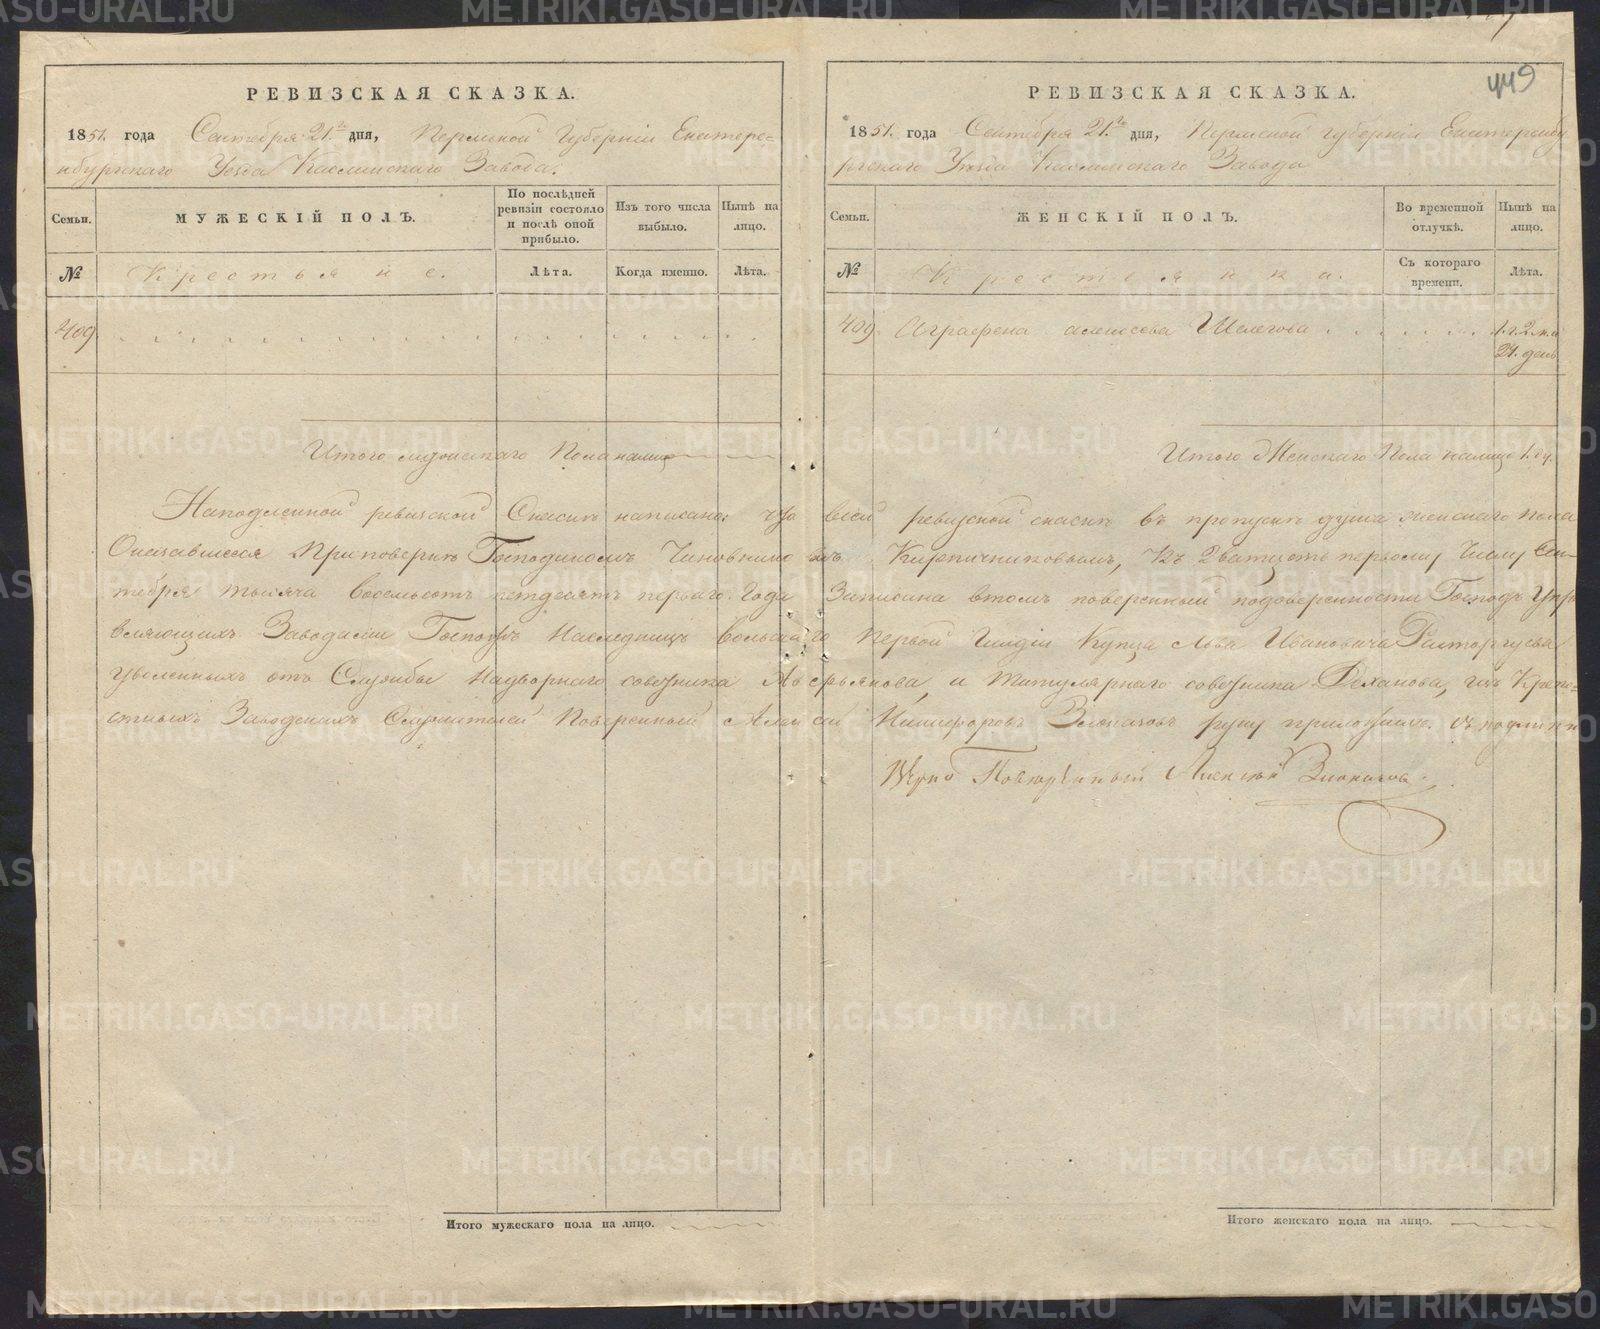 449
РЕВИЗСКАЯ СКАЗКА.
1851. года Сентября 21.го дня, Пермской Губерніи Екатере=
нбургскаго Уезда Каслинскаго Завода.
Семьи.
МУЖЕСКІЙ ПОЛЪ.
По послѣдней ревизіи состояло и послѣ оной прибыло.
Изъ того числа выбыло.
Нынѣ на лицо.
№
Крестьяне.
Лѣта.
Когда именно.
Лѣта.
409
Итого мужескаго Пола налицо
РЕВИЗСКАЯ СКАЗКА.
1851. года Сентября 21.го дня, Пермской Губерніи Екатеринбу
ргскаго Уезда Каслинскаго Завода
Семьи.
ЖЕНСКІЙ ПОЛЪ.
Во временной отлучкѣ.
Нынѣ на лицо.
№
Крестьянка.
Съ котораго времени.
Лѣта.
409. Аграфена Алексеева Шелегова 1.г. 2.м.
24. день
Итого Женскаго Пола налицо 1. ду.
Наподленной ревизской Скаске написано: что всей ревизской скаске въ пропуске душа женскаго пола
Оказавшеся Приповерке Господиномъ Чиновником Кирпичниковымъ, къ Дватцать первому Числу Сен=
тебря тысяча восемьсотъ петдесятъ перваго Года Записана втомъ поверенный подоверенности Господъ Упр
вляющихъ Заводами Госпожъ Наследницъ Вольскаго Первой Гилдіи Купца Льва Ивановича Расторгуева
уволенныхъ отъ Службы Надворнаго советника и Титулярнаго советника Деханова, изъ Крепо=
стныхъ Заводскихъ Служителей Поверенный Алексей Никифоровъ Злоказовъ руку приложилъ. съ подлин
Поверенный Алексей Злоказовъ
Итого мужескаго пола на лицо.
Итого женскаго пола на лицо.